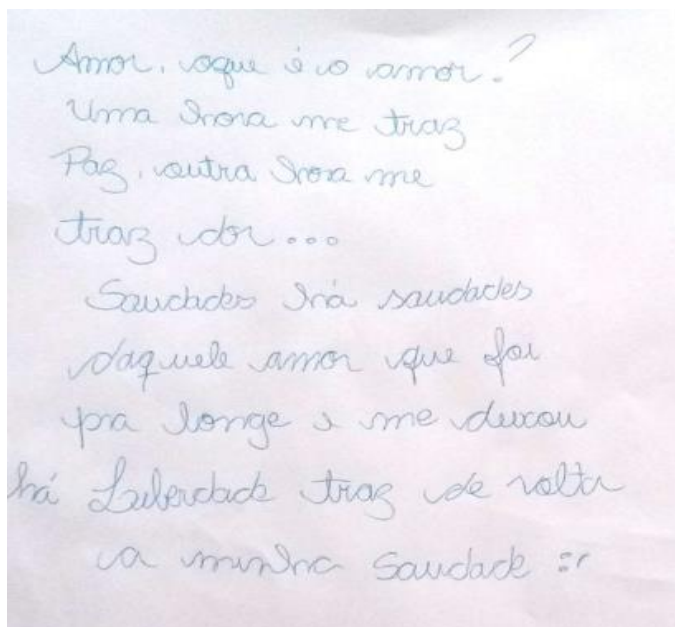 Amor, oque é o amor?
Uma hora me traz
Paz, outra hora me
traz dor...
Saudades há saudades
daquele amor que foi
pra longe e me deixou
há Liberdade traz de volta
a minha Saudade :(